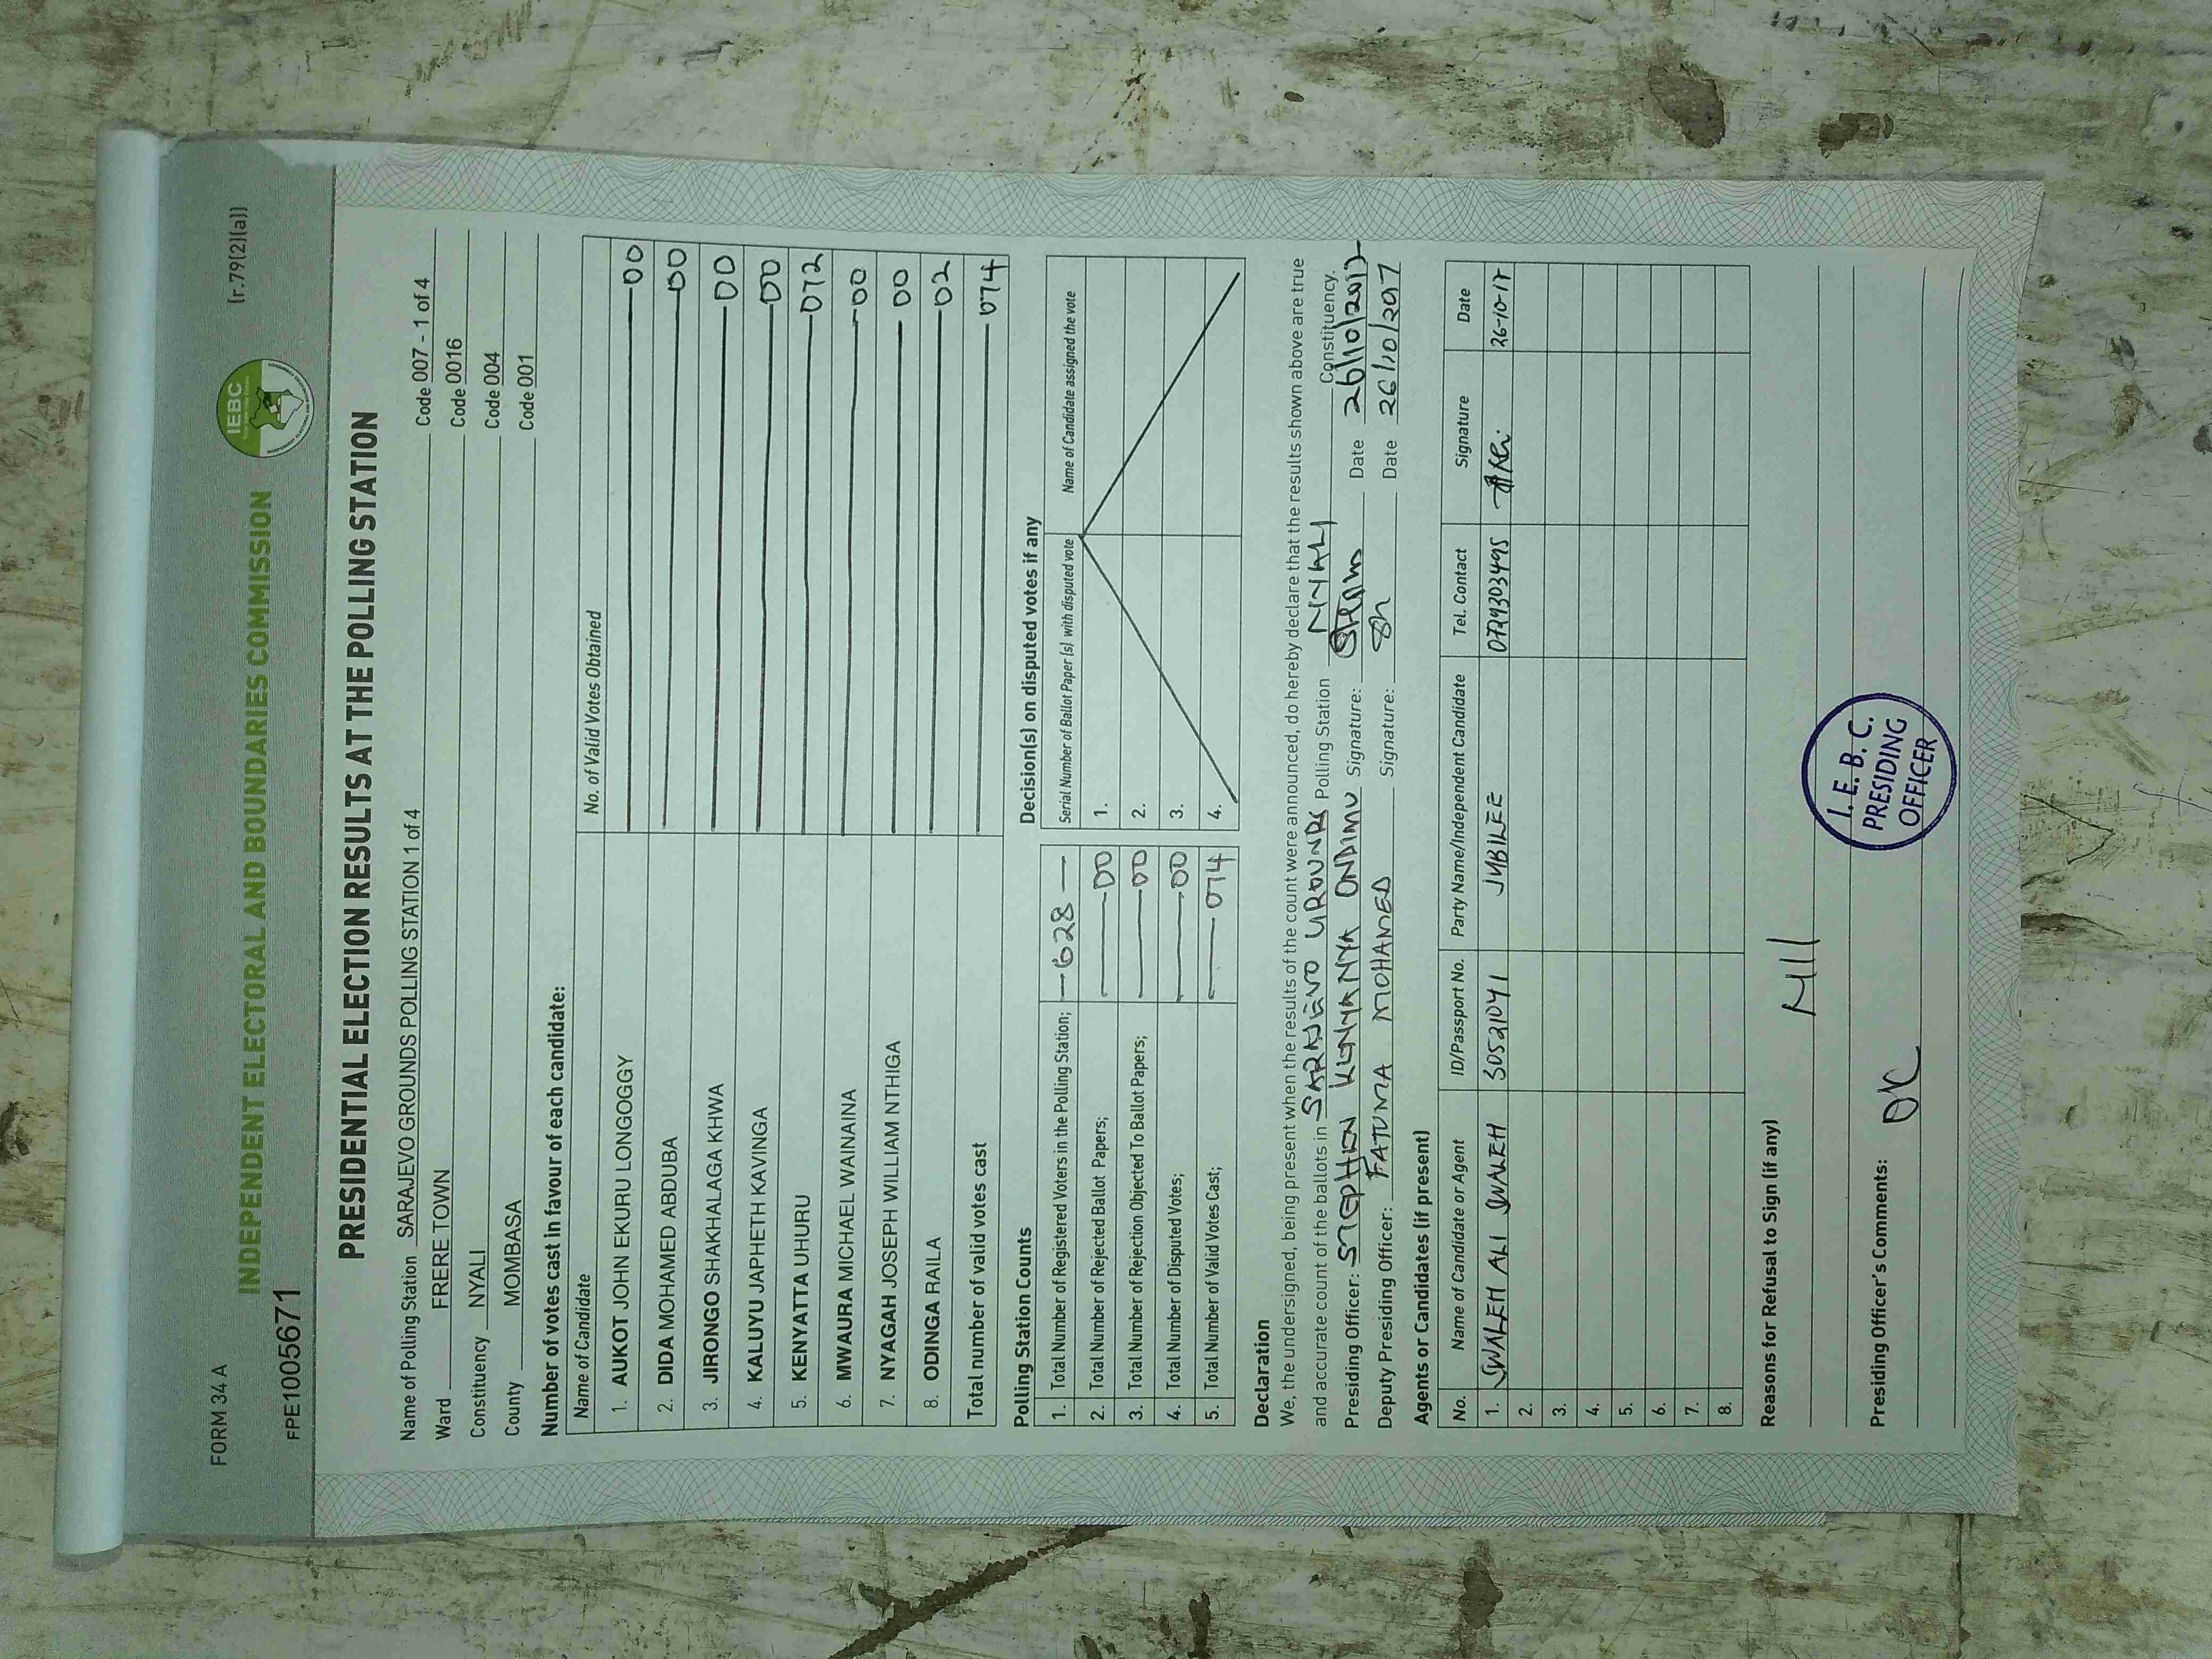 FORM 34 A
(r.79(2)(a))
INDEPENDENT ELECTORAL AND BOUNDARIES COMMISSION
IEBC
FPE1005671
PRESIDENTIAL ELECTION RESULTS AT THE POLLING STATION
Name of Polling Station SARAJEVO GROUNDS POLLING STATION 1 of 4 Code 007 - 1 of 4
Ward FRERE TOWN Code 0016
Constituency NYALI Code 004
County MOMBASA Code 001
Number of votes cast in favour of each candidate:
Name of Candidate No. of Valid Votes Obtained
1. AUKOT JOHN EKURU LONGOGGY 00
2. DIDA MOHAMED ABDUBA 00
3. JIRONGO SHAKHALAGA KHWA 00
4. KALUYU JAPHETH KAVINGA 00
5. KENYATTA UHURU 072
6. MWAURA MICHAEL WAINAINA 00
7. NYAGAH JOSEPH WILLIAM NTHIGA 00
8. ODINGA RAILA 02
Total number of valid votes cast 074
Polling Station Counts
1. Total Number of Registered Voters in the Polling Station; 628
2. Total Number of Rejected Ballot Papers; 00
3. Total Number of Rejection Objected To Ballot Papers; 00
4. Total Number of Disputed Votes; 00
5. Total Number of Valid Votes Cast; 074
Decision(s) on disputed votes if any
Serial Number of Ballot Paper (s) with disputed vote Name of Candidate assigned the vote
1.
2.
3.
4.
Declaration
We, the undersigned, being present when the results of the count were announced, do hereby declare that the results shown above are true
and accurate count of the ballots in SARAJEVO GROUNDS Polling Station NYALI Constituency.
Presiding Officer: STEPHEN ONDIMU Signature: Date 26/10/2017
Deputy Presiding Officer: FATUMA MOHAMED Signature: Date 26/10/2017
Agents or Candidates (if present)
No. Name of Candidate or Agent ID/Passport No. Party Name/Independent Candidate Tel. Contact Signature Date
1. SWALEH ALI SWALEH 30521041 JUBILEE 26-10-17
2.
3.
4.
5.
6.
7.
8.
Reasons for Refusal to Sign (if any)
Nil
Presiding Officer's Comments:
OK
I. E. B. C.
PRESIDING
OFFICER